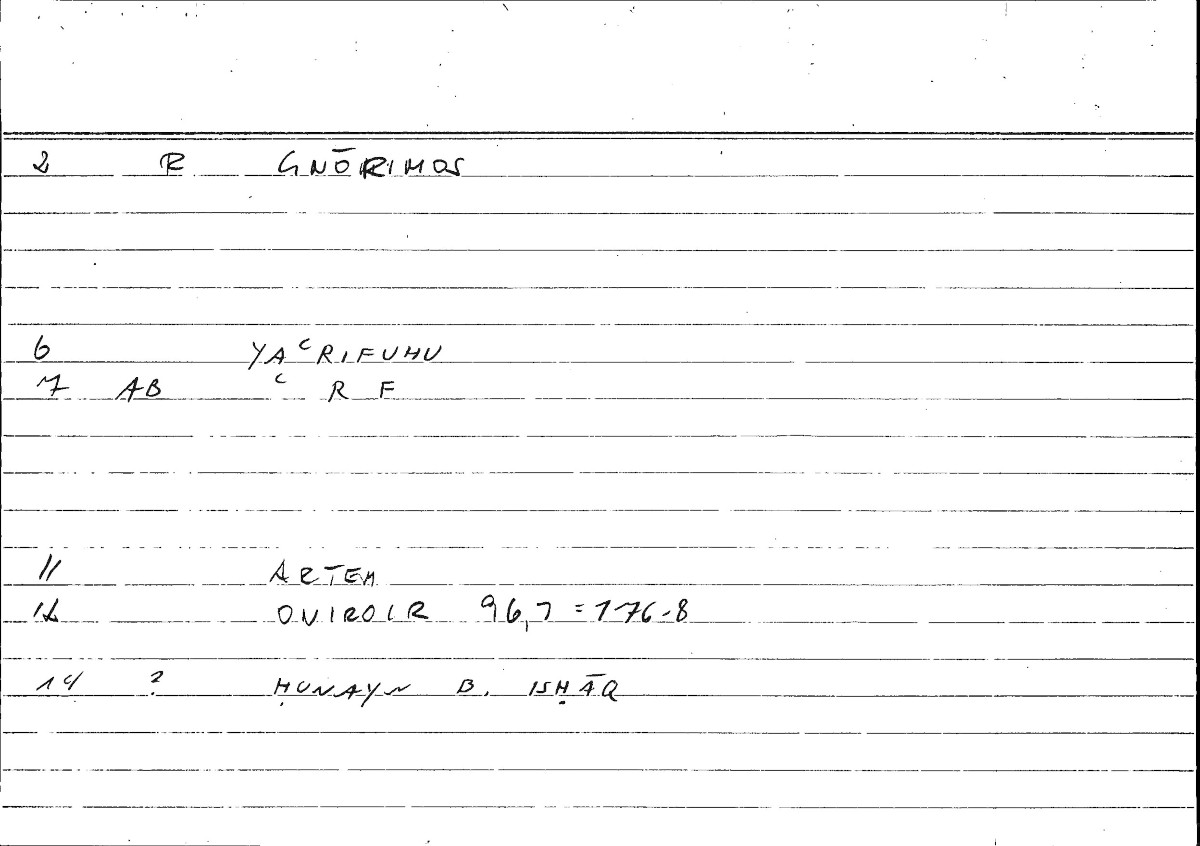 2 R GNŌRIMOS
6 YAʿRIFUHU
7 AB ʿ R F
11 ARTEM
12 ONIROCR 96,7 = 176-8
14 ? ḤUNAYN B. ISḤĀQ